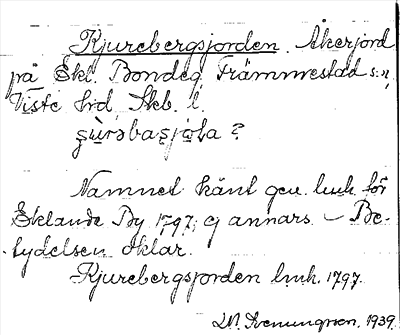 Kjurebergsjorden. Åkerjord
på Ekl. Bondeg Främmestad s:n,
Viste hrd, Skb. l.
ʂùrəbasjoʈa ?
Namnet känt gen. lmh. för
Eklanda By 1797, ej annars. – Be-
tydelsen oklar.
Kjurebergsjorden lmh. 1797.
Svenungson. 1939.